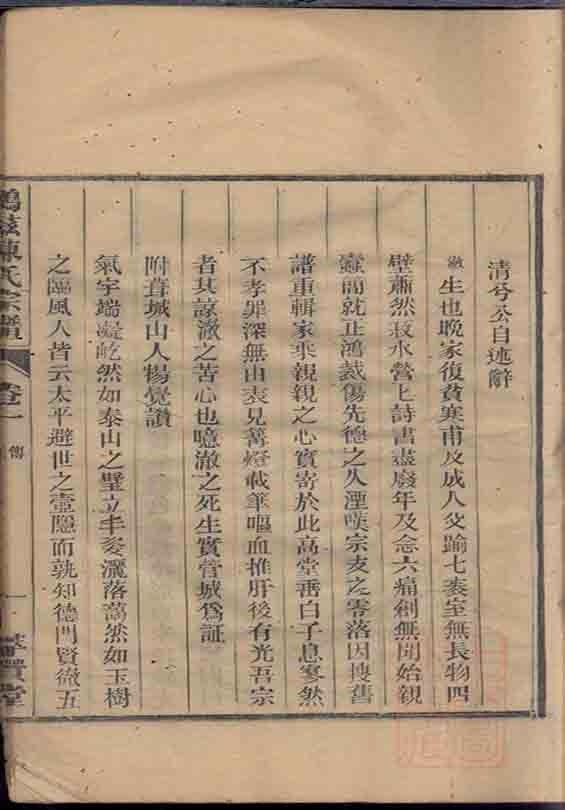 清兮公自述辭
澈生也晚家復貧寒甫及成人父踰七袠室無長物四
壁蕭然菽水營上詩書盡廢年及念六痛創無聞始親
蠹簡就正鴻裁傷先德之久湮嘆宗支之零落因搜舊
譜重輯家乘親親之心實寄於此高堂垂白子息寥然
不孝罪深無由表見篝燈載筆嘔血推肝後有光吾宗
者其諒澈之苦心也噫澈之死生實管城爲証
附葺城山人楊覺讚
氣宇端凝屹然如泰山之壁立丰姿灑落藹然如玉樹
之臨風人皆云太平避世之壺隱而孰知德門賢徹五
陳氏宗譜
卷一
傳
一
萃賢堂